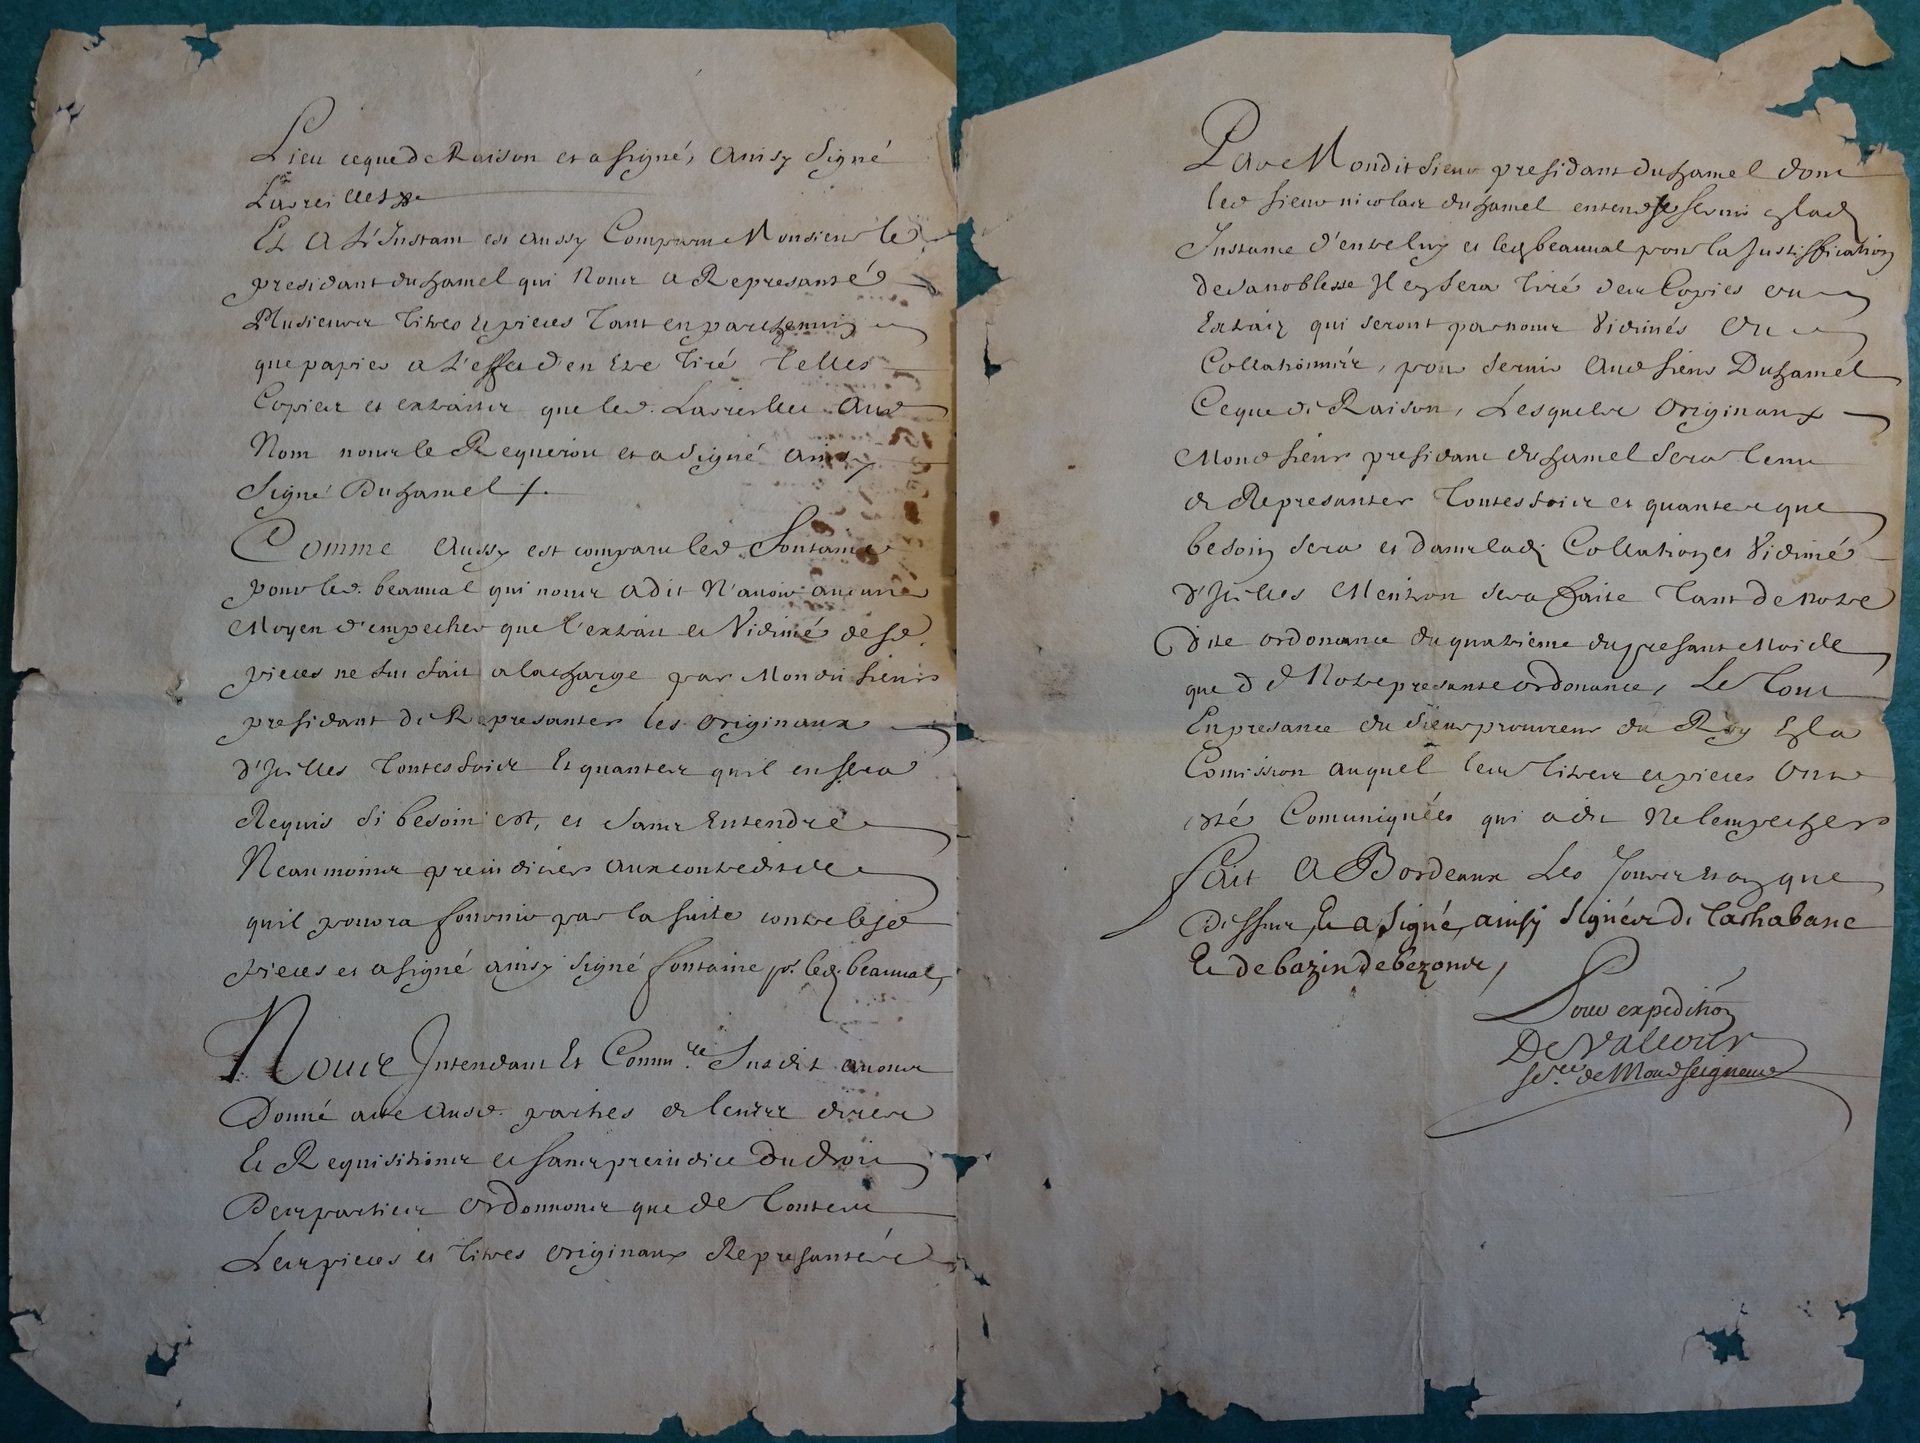 Lieu ceque de Raison et a signé, ainsy signé
Lavreillet
Et A L'Instant est aussy Comparu Monsieur le
presidant duhamel qui Nous a Represanté
Plusieurs titres et pieces tant en parchemin
que papier a l'effect d'en Etre tiré telles
Copies et extraits que led. Aud
Nom nous le Requerons et a signé ainsy
Signé Duhamel
Comme aussy est comparu led. fontaine
pour led. beauval qui nous a dit N'avoir aucune
Moyen d'empecher que l'extrait et Vidimé desd.
pieces ne soit fait a la charge par Mondit sieur
presidant de Represanter les originaux
d'Jcelles toutes fois Et quantes quil en sera
Requis si besoin est, et sans Entendre
Neanmoins preiudicier aux contredits
quil poura fournir par la suite contre lesd
pieces et a signé ainsy signé fontaine pr. led. beauval,
Nous Jntendant Et Commre. Susdit avons
Donné acte ausd. parties de leurs dires
Et Requisitions et sans preiudice Du droit
Des parties ordonnons que de toutes
Les pieces et titres originaux Represantés
Par Mondit sieur presidant duhamel dont
led sieur nicolas duhamel entend se servir
Instance d'entre luy et led beauval pour la Justiffication
de sa noblesse Jl sera tiré des Copies ou
Extraits qui seront par nous Vidimés ou
Collationnés, pour servir Aud sieur Duhamel
Ceque de Raison, Lesquels originaux
Mond sieur presidant duhamel sera tenu
de Represanter toutes fois et quantes que
besoin sera et dans lad. Collation et Vidimé
d'Jcelles Mention sera faite tant de notre
dite ordonance du quatrieme du presant Mois de
que de Notre presante ordonance, Le tout
En presance du sieur procureur du Roy En la
Comission auquel les titres et pieces ont
été Comuniquées qui a dit Ne lempecher
fait A Bordeaux Les Jour et an que
dessus, Et a signé, ainsy signés de Lachabane
Et de bazin de bezons,
Pour expedition
De Valcour
secre. de Mondseigneur